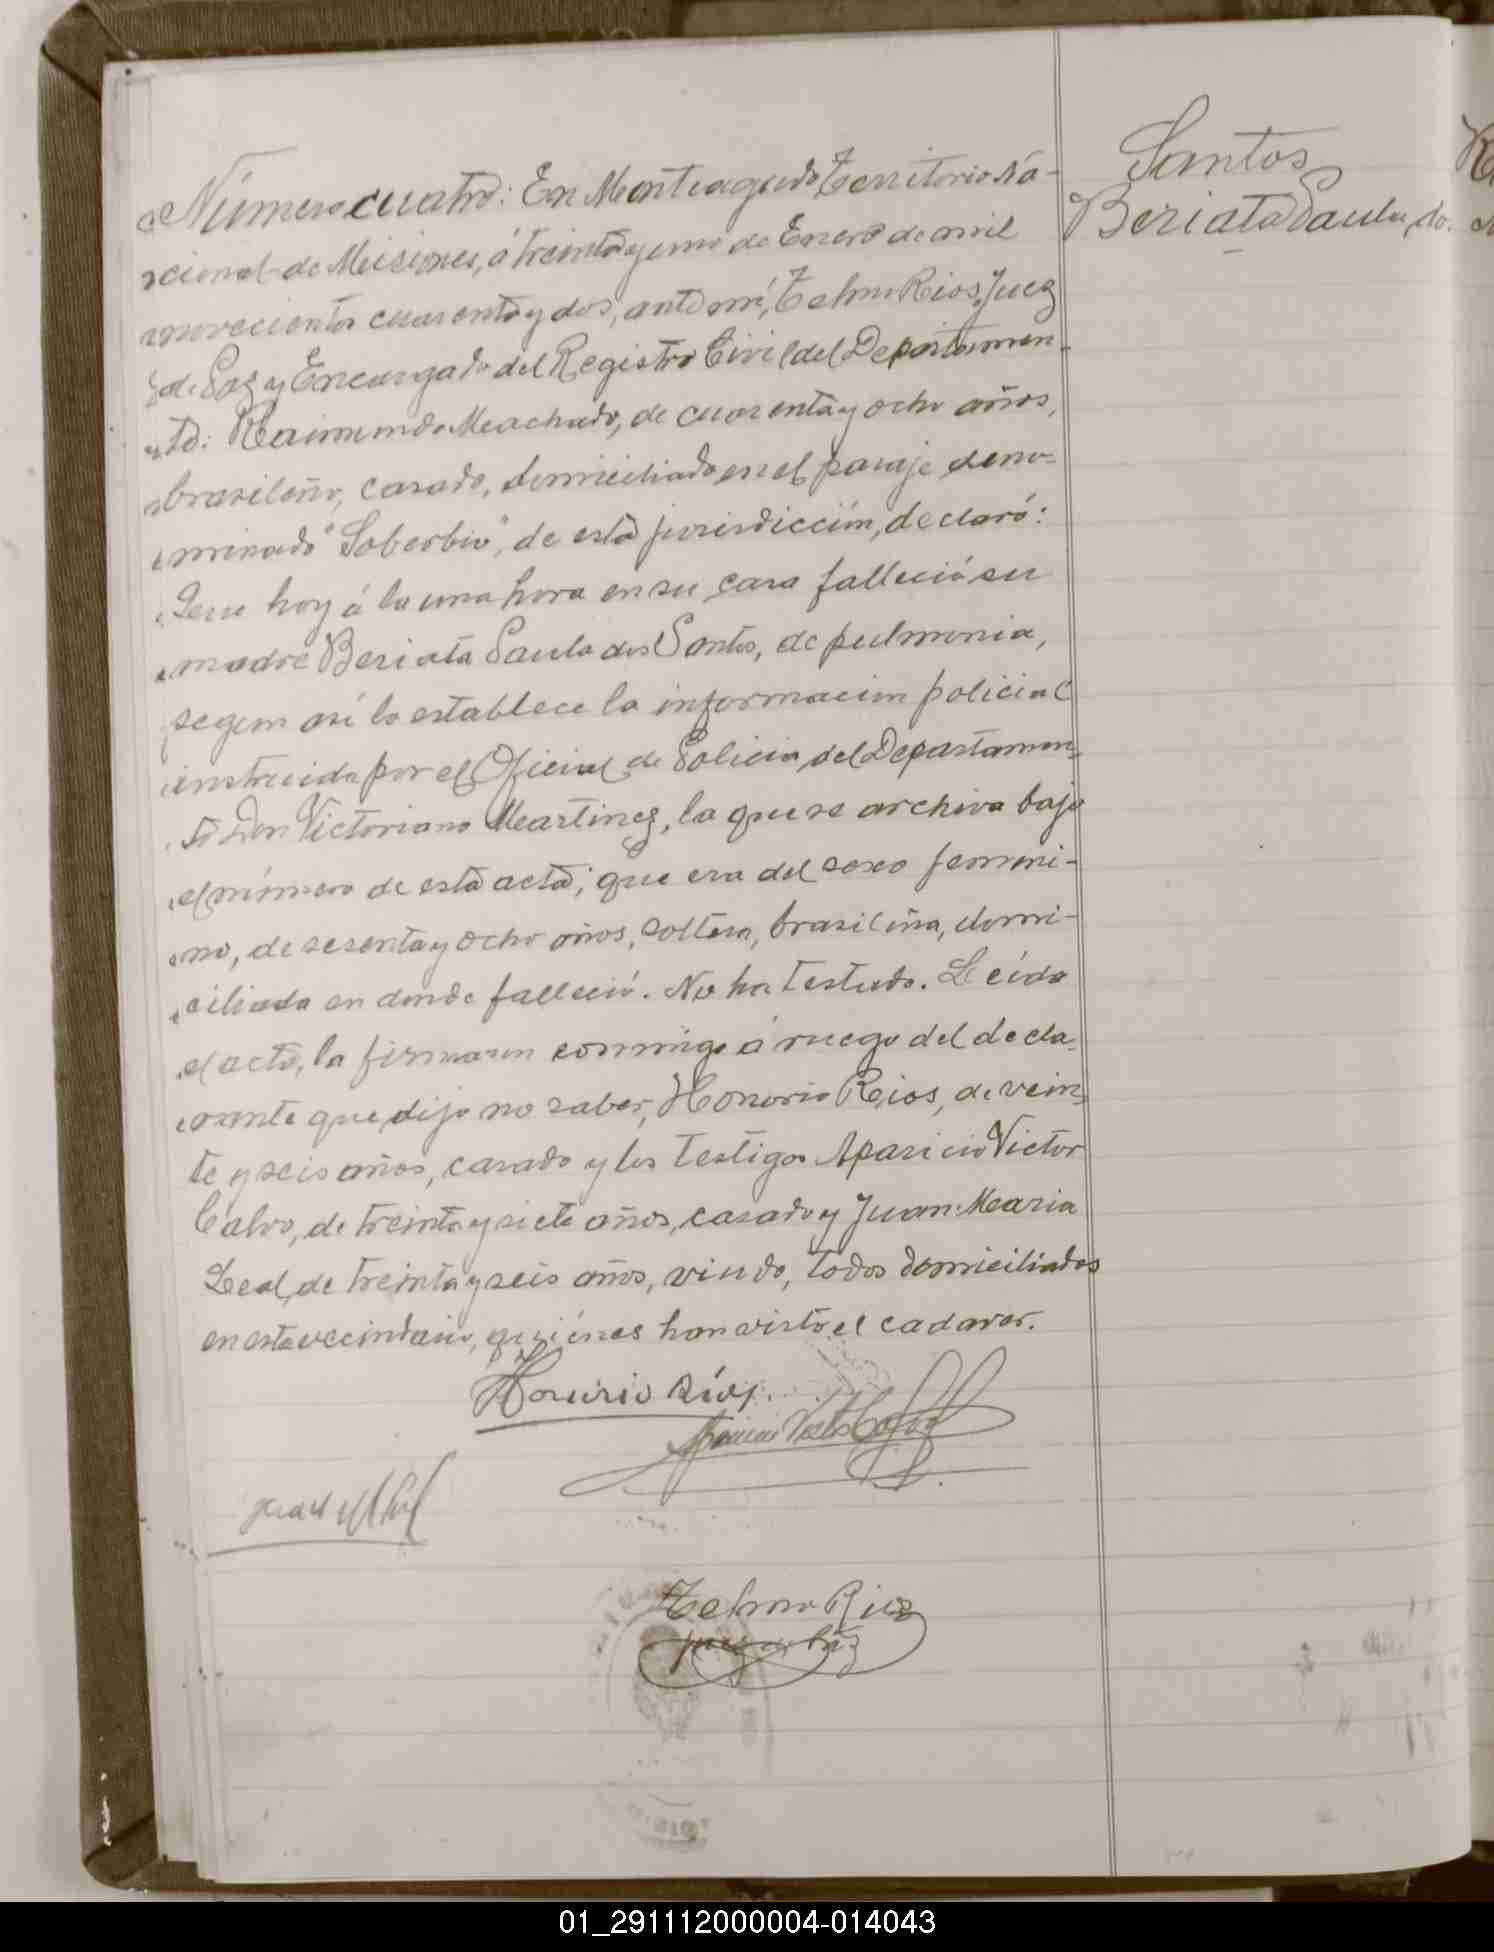 Santos
Beriata Paula do.
Número cuatro: En Monteagudo Territorio Na-
cional de Misiones, á treinta y uno de Enero de mil
novecientos cuarenta y dos, ante mí, Telmo Rios, Juez
de Paz y Encargado del Registro Civil del Departamen-
to: Raimundo Machado, de cuarenta y ocho años,
brasileño, casado, domiciliado en el paraje deno-
minado "Soberbio", de esta jurisdicción, declaró:
Que hoy á la una hora en su casa falleció su
madre Beriata Paula dos Santos, de pulmonia,
segun asi lo establece la informacion policial
instruida por el Oficial de Policia del Departamen-
to Don Victoriano Martinez, la que se archiva bajo
el número de esta acta; que era del sexo femeni-
no, de sesenta y ocho años, soltera, brasileña, domi-
ciliada en donde falleció. No ha testado. Leída
el acta, la firmaron conmigo á ruego del decla-
rante que dijo no saber, Honorio Rios, de vein-
te y seis años, casado y los testigos Aparicio Victor
Calvo, de treinta y siete años, casado y Juan Maria
Leal, de treinta y seis años, viudo, todos domiciliados
en este vecindario, quiénes han visto el cadaver.
Honorio Ríos.
Aparicio Victor Calvo
Juan M Leal
Telmo Rios
Juez de Paz
01_291112000004-014043